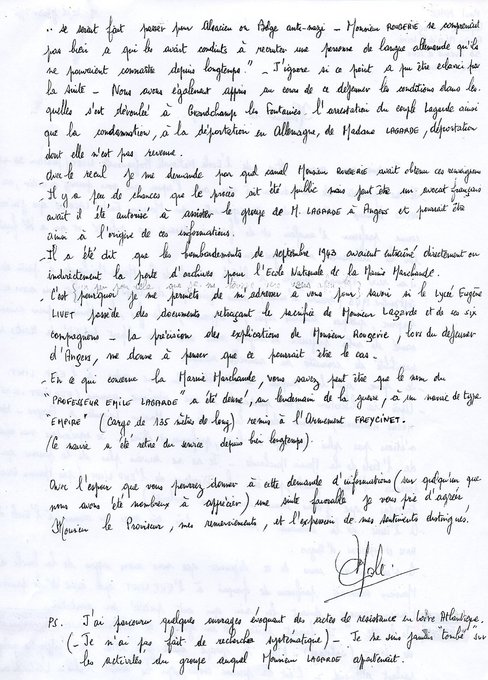 .. se serait fait passer pour Alsacien ou Belge anti-nazi - Monsieur ROUGERIE ne comprenait
pas bien ce qui les avait conduits à recruter une personne de langue allemande qu'ils
ne pouvaient connaître depuis longtemps." - J'ignore si ce point a pu être éclairci par
la suite - Nous avons également appris au cours de ce déjeuner les conditions dans les-
quelles s'est déroulée à Grandchamp les Fontaines l'arrestation du couple Lagarde ainsi
que la condamnation, à la déportation en Allemagne, de Madame LAGARDE, déportation
dont elle n'est pas revenue.
Avec le recul je me demande par quel canal Monsieur ROUGERIE avait obtenu ces renseignements
- Il y a peu de chances que le procès ait été public mais peut être un avocat français
avait il été autorisé à assister le groupe de M. LAGARDE à Angers et pourrait être
ainsi à l'origine de ces informations.
- Il a été dit que les bombardements de septembre 1943 avaient entraîné directement ou
indirectement la perte d'archives pour l'Ecole Nationale de la Marine Marchande.
- C'est pourquoi je me permets de m'adresser à vous pour savoir si le Lycée Eugène
LIVET possède des documents retraçant le sacrifice de Monsieur Lagarde et de ses six
compagnons - La précision des explications de Monsieur Rougerie, lors du déjeuner
d'Angers, me donne à penser que ce pourrait être le cas.
- En ce qui concerne la Marine Marchande, vous savez peut être que le nom du
"PROFESSEUR EMILE LAGARDE" a été donné, au lendemain de la guerre, à un navire de type
"EMPIRE" (Cargo de 135 mètres de long) remis à l'Armement FREYCINET.
(Ce navire a été retiré du service depuis bien longtemps).
Avec l'espoir que vous pourrez donner à cette demande d'informations (sur quelqu'un que
nous avons été nombreux à apprécier) une suite favorable je vous prie d'agréer,
Monsieur le Proviseur, mes remerciements, et l'expression de mes sentiments distingués.
PS. J'ai parcouru quelques ouvrages évoquant des actes de resistance en Loire Atlantique.
(- Je n'ai pas fait de recherche systématique) - Je ne suis jamais "tombé" sur
les activités du groupe auquel Monsieur LAGARDE appartenait.